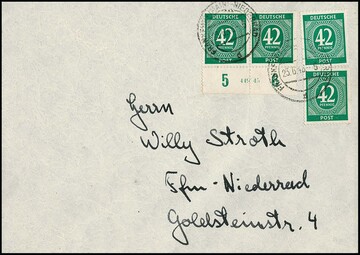 DEUTSCHE
42
PFENNIG
POST
DEUTSCHE
42
PFENNIG
POST
DEUTSCHE
42
PFENNIG
POST
42
PFENNIG
POST
5
Herrn
Willy Stroth
Ffm-Niederrad
Goldsteinstr. 4